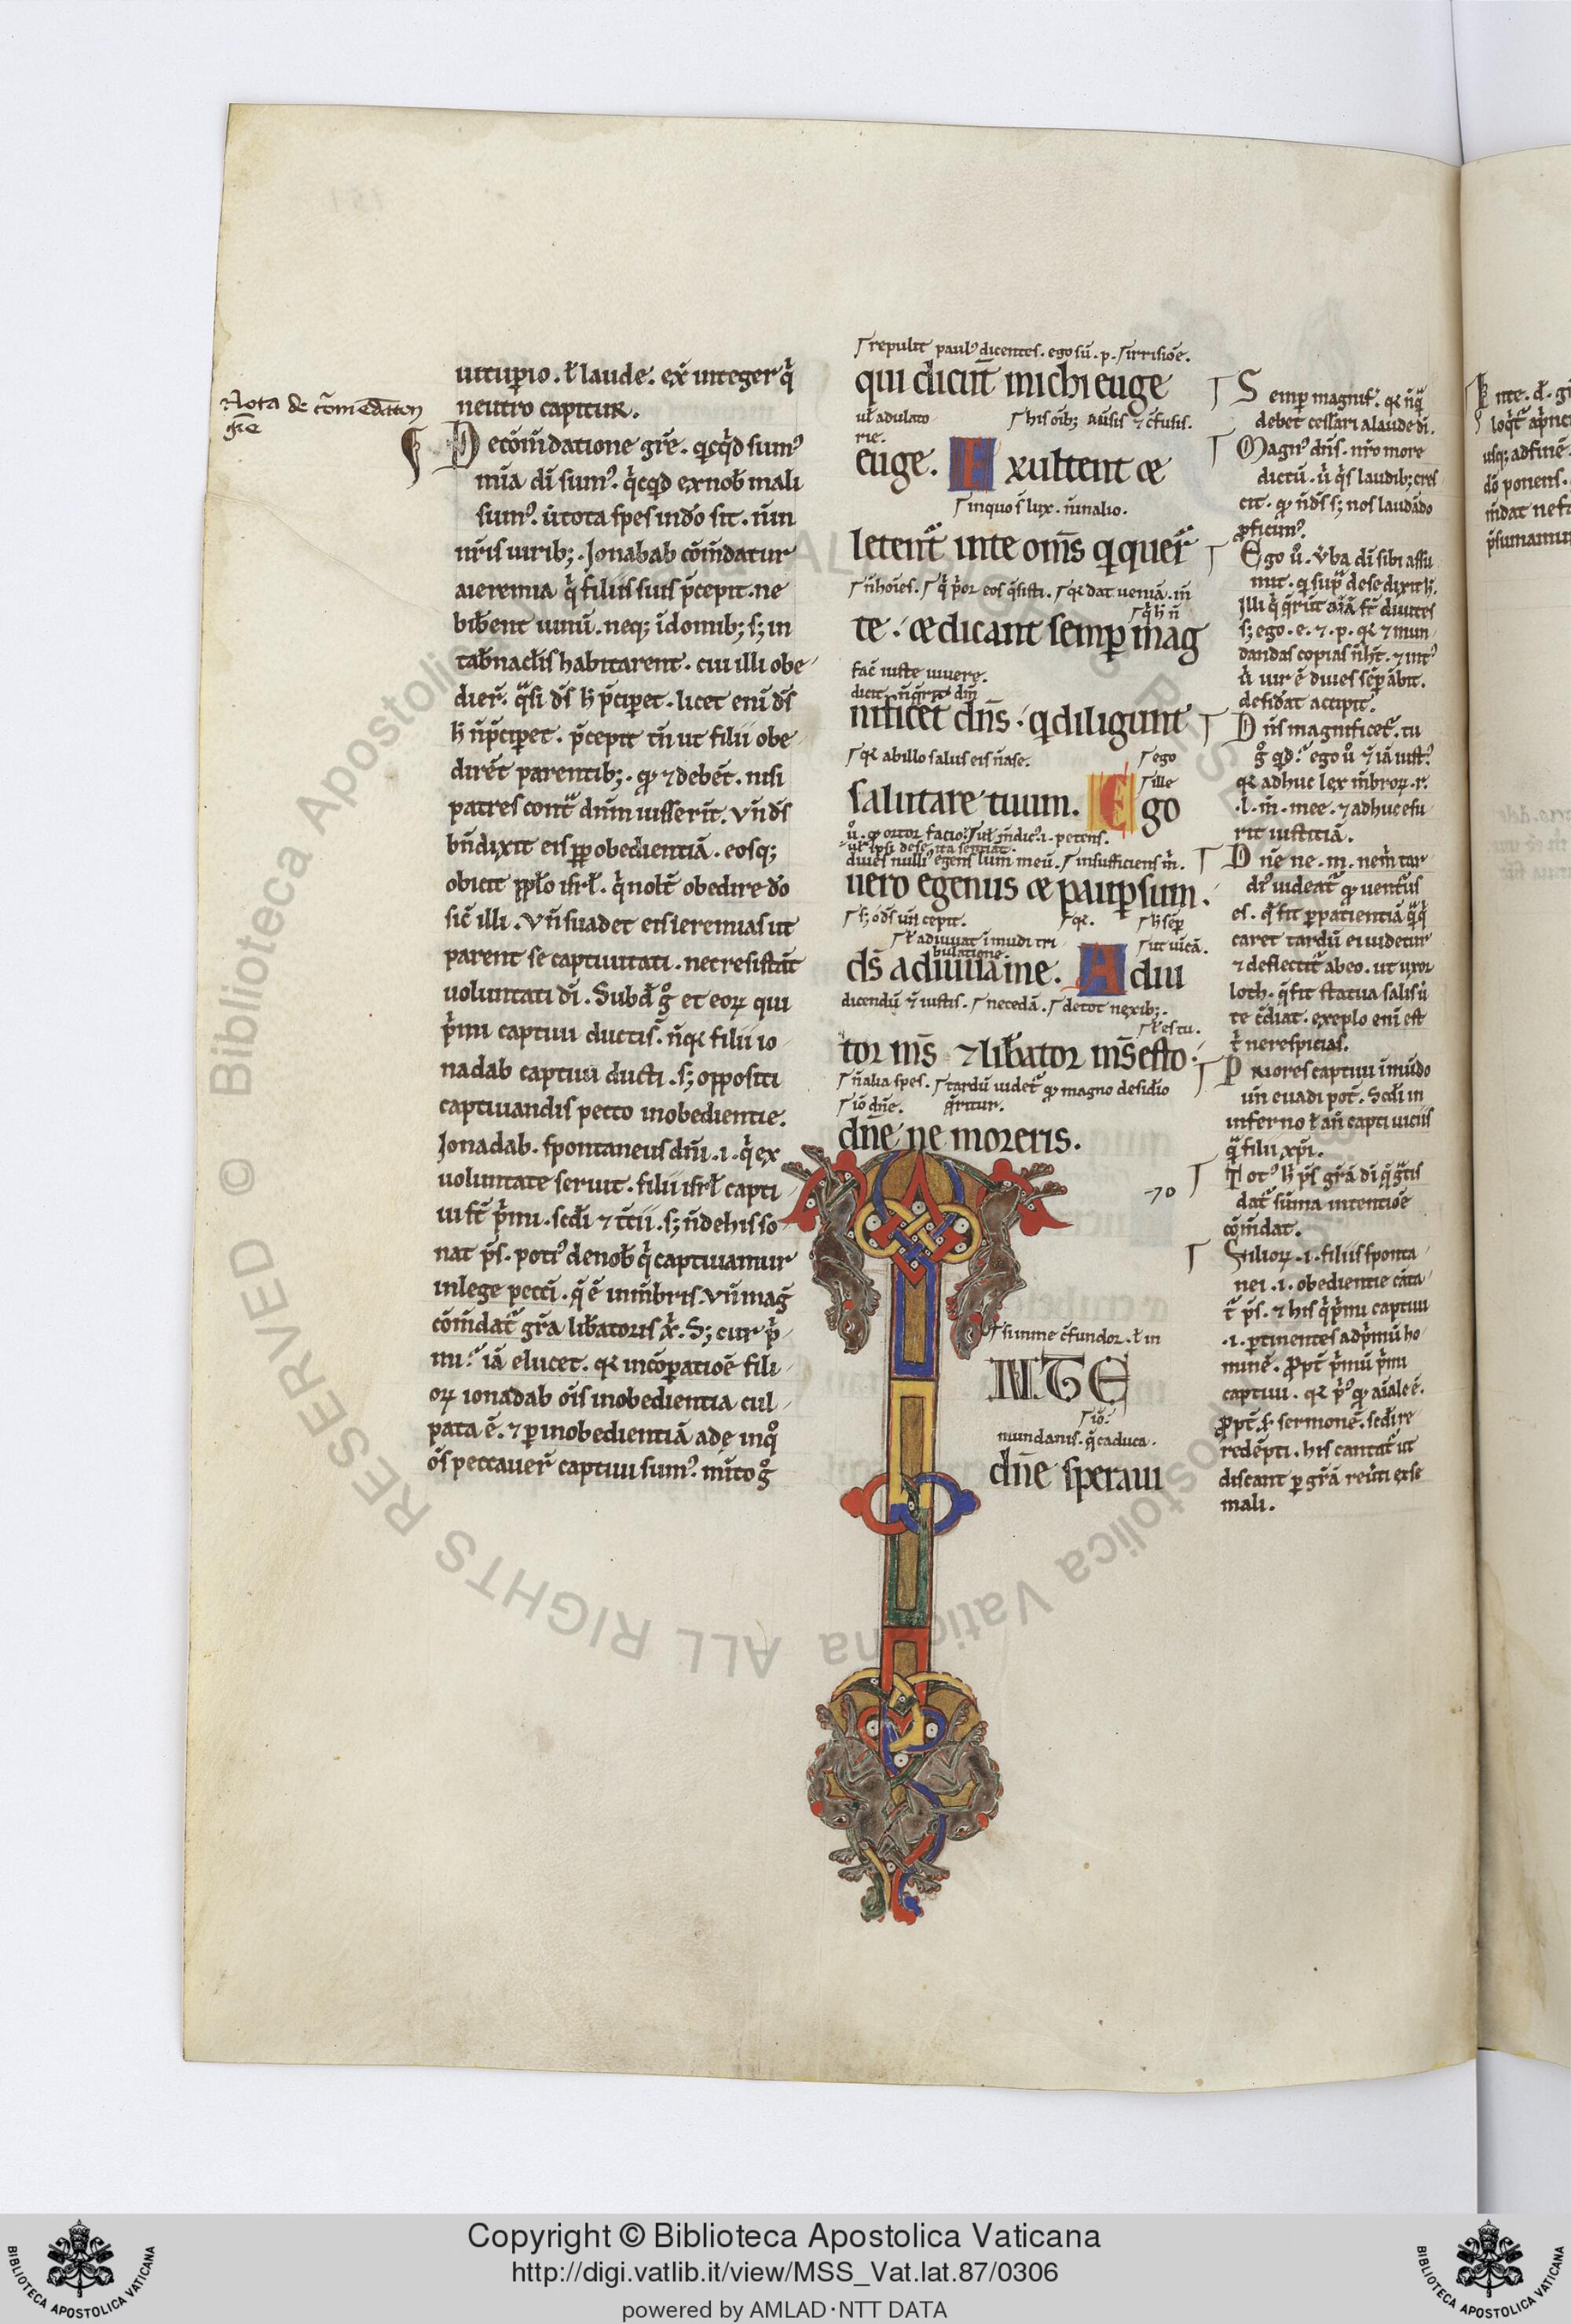 Nota de cōmēdatōn
gr̄e
uitup̄io . ł laude . ex integer q̇
neutro capitur .
De cōm̄datione gr̄e . q̇cq̇d sumꝰ
mīa di sumꝰ . q̇cq̇d ex nob̄ mali
sumꝰ . ut tota spes in do sit . n̄ in
nr̄is uirib; . Ionabab cōm̄datur
a ieremia q̇ filiis suis p̄cepit . ne
bib̄ent uinū . neq; ī domib; s; in
tab̄nacl̄is habitarent . cui illi obe
dier̄ . q̄si ds̄ h̄ p̄cip̄et . licet eni ds̄
h̄ n̄ p̄cip̄et . p̄cepit tn̄ ut filii obe
dirēt parentib; . qꝫ ⁊ debēt . nisi
patres contᵃ dn̄m iusserīt . Vn̄ ds̄
bn̄dixit eis ꝓp̄ obedientiā . eosq;
obicit pp̄lo isrł . q̇ nolt̄ obedire do
sic̄ illi . Vn̄ suadet eis ieremias ut
parent se captiuitati . nec resistāt
uoluntati di . Subd̄ gͦ et eoꝝ qui
p̄mi captiui ductis . n̄ qꝛ filii io
nadab captiui ducti . s; oppositi
captiuandis pecco inobedientie .
Ionadab . spontaneus dn̄i . i . q̇ ex
uoluntate seruit . filii isrł capti
ui st̄ p̄mi . scd̄i ⁊ t̄cii . s; n̄ de his so
nat p̄s . potiꝰ de nob̄ q̇ captiuamur
in lege pecci . q̄ ē in mēbris . Vn̄ mag̃
cōm̄datᵃ gr̄a lib̄atoris x̄ . S; cur p̄
mi . iā elucet . qꝛ incōparatiōe fili
oꝝ ionadab oīs inobedientia cul
pata ē . ⁊ p inobedientiā ade in qͦ
oēs peccauer̄ captiui sumꝰ . m̄ito gͦ
repulit paulꝰ dicentes . ego sū . p . irrisiōe .
qui dicūt michi euge
uł adulato
rie .
his oīb; uisis ⁊ c̄fusis .
euge . Exultent æ
in quo ē lux . n̄ in alio .
letent̄ in te om̄s q̇ quer̄
n̄ hoīes . q̇ p̄or eos q̄sisti . qꝛ dat ueniā . in
q̇ h̄ n̄
te : æ dicant semp mag
fac̄ iuste uiuere .
nificet dn̄s : q̇ diligunt
qꝛ ab illo salus eis n̄ a se .
ego
ille
salutare tuum . Ego
insufficiens m̄ .
uero egenus æ paup sum .
qꝛ .
h̄ sēp
ł adiuuat ī mūdi tri
bulatione .
ut uīcā .
ds̄ adiuua me . Adiu
dicendū ē iustis . ne cedā . de tot nexib; .
ł es tu .
tor ms̄ ⁊ lib̄ator ms̄ esto :
n̄ alia spes . tardū uidetᵃ qꝫ magno desid̄io
iō dn̄e . q̄ritur .
dn̄e ne moreris .
70
summe c̄fundor . ł in
IN TE
iō
mundanis . q̄ caduca .
dn̄e speraui
Semp magnif̄ . qꝛ n̄q̄
debet cessari a laude di .
Magnꝰ dn̄s . nr̄o more
dictū . n̄ q̇s laudib; cres
cit . qꝫ n̄ ds̄ s; nos laudādo
ꝓficimꝰ .
Ego uͦ . v̄ba di sibi assu
mit . q̇ supᵃ de se dixit h̄ .
Illi q̇ q̄rūt aīā st̄ diuites
s; ego . e . ⁊ . p . qꝛ ⁊ mun
danas copias n̄ h̄t . ⁊ intꝰ
n̄ uir ē diues sēp ābit .
desid̄at accipit .
Dn̄s magnificetᵃ . tu
gͦ qd̄ . ego uͦ ē iā iustꝰ .
qꝛ adhuc lex mēbroꝝ . r .
. l . m̄ . mee . ⁊ adhuc esu
rit iustitiā .
Dn̄e ne . m . nem̄ tar
dꝰ uideatᵃ qꝫ uentᵃꝰ
es . q̄ fit p patientiā q̄ q̇
caret tardū ei uidetur
⁊ deflectit̄ ab eo . ut uxor
loth . q̄ fit statua salis ū
te c̄diat . exēplo eni est
t̄ ne respicias .
Priores captiui ī mūdo
un̄ euadi pot̄ . Scd̄i in
inferno ł an̄ capti uiciis
q̄ filii xp̄i .
Totꝰ h̄ p̄s gr̄ā di q̄ gᵃtis
datᵃ sūma intentiōe
cōm̄dat .
Filioꝝ . i . filiis sponta
nei . i . obedientie cāta
t̄ p̄s . ⁊ his q̇ p̄mi captiui
. i . ptinentes ad p̄mū ho
minē . ꝓpt̄ p̄mū p̄mi
captiui . qꝛ p̄ꝰ qꝫ aīale ē .
ꝓpt̄ . s . sermonē . scd̄i re
redēpti . his cantatᵃ ut
discant p gr̄ā reuti ex se
mali .
Copyright © Biblioteca Apostolica Vaticana
http://digi.vatlib.it/view/MSS_Vat.lat.87/0306
powered by AMLAD·NTT DATA